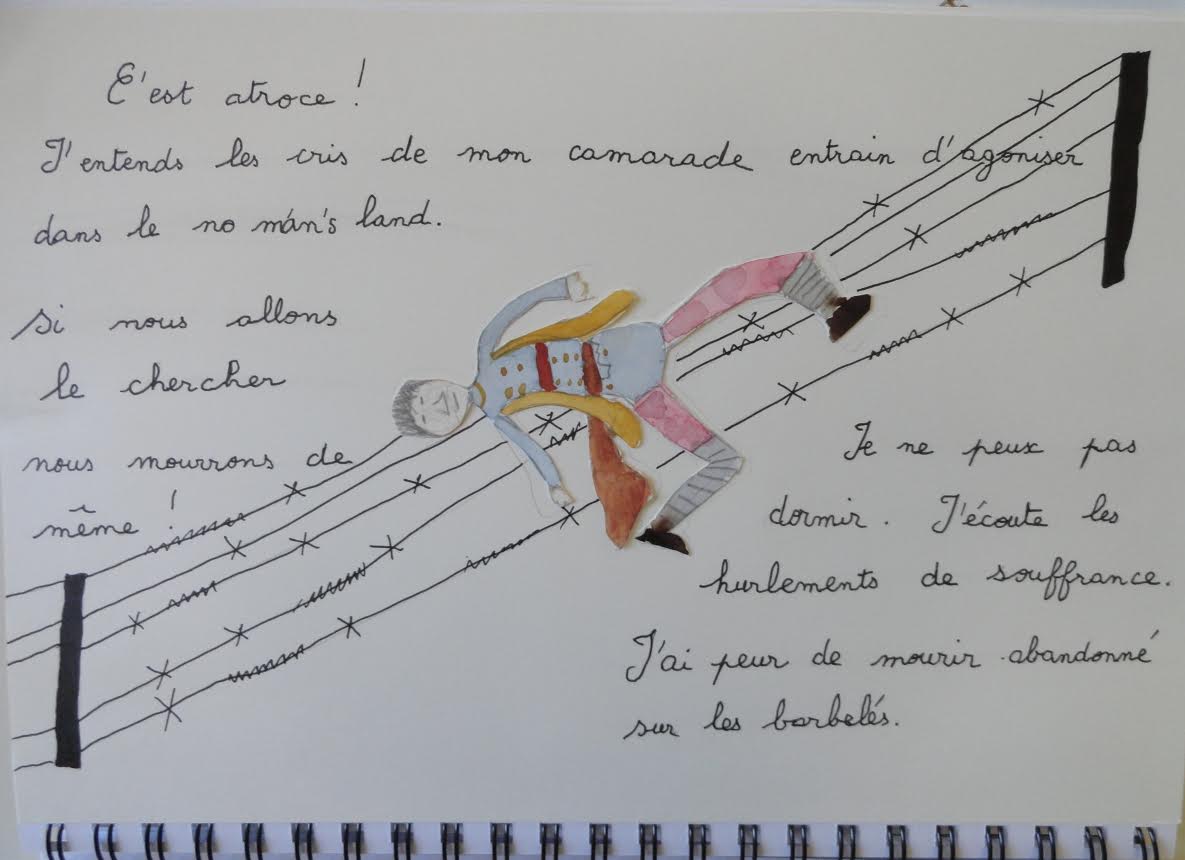 C'est atroce !
J'entends les cris de mon camarade entrain d'agoniser
dans le no mán's land.
si nous allons
le chercher
nous mourrons de
même !
Je ne peux pas
dormir. J'écoute les
hurlements de souffrance.
J'ai peur de mourir abandonné
sur les barbelés.